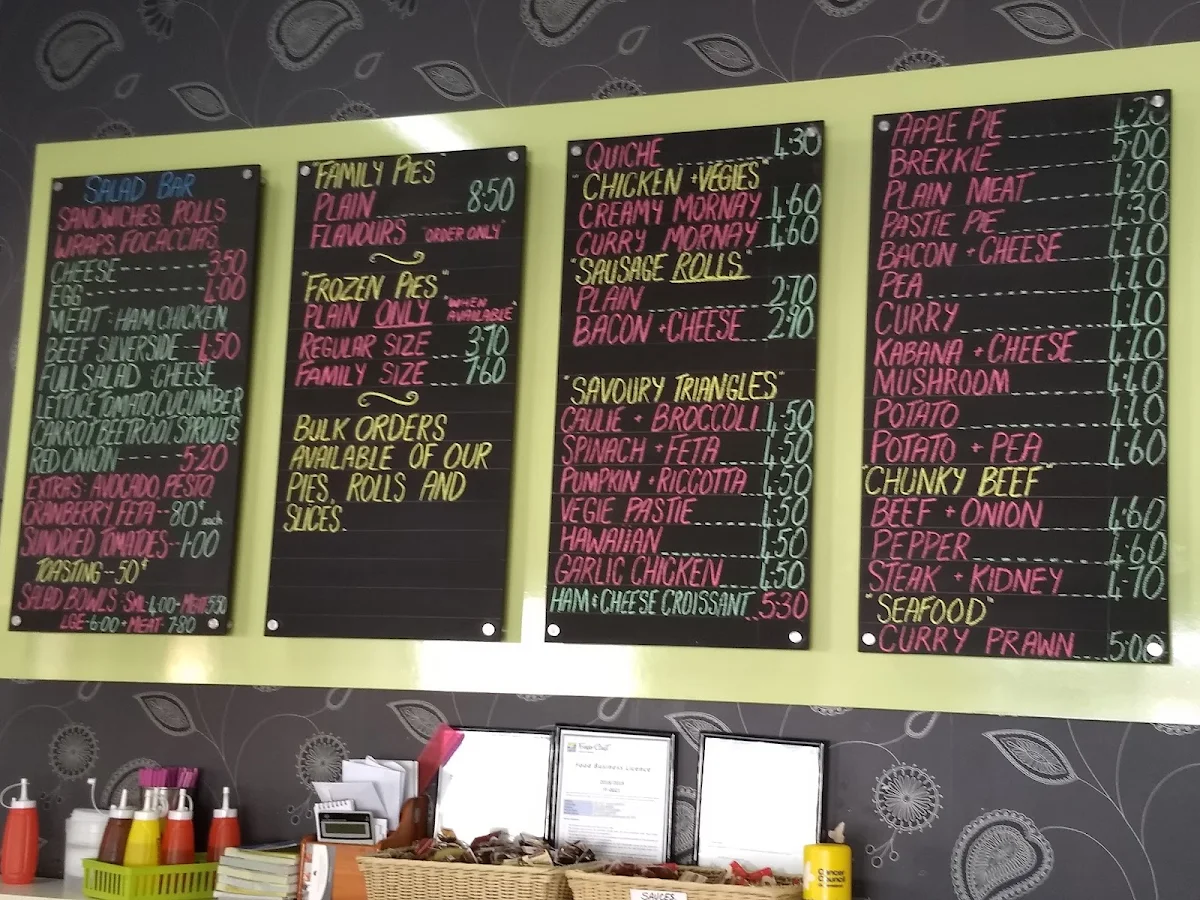 SALAD BAR
SANDWICHES, ROLLS
WRAPS, FOCACCIAS
CHEESE 3.50
EGG 4.00
MEAT: HAM, CHICKEN
BEEF SILVERSIDE 4.50
FULL SALAD: CHEESE
LETTUCE, TOMATO, CUCUMBER
CARROT, BEETROOT, SPROUTS
RED ONION 5.20
EXTRAS: AVOCADO, PESTO
CRANBERRY, FETA -- 80¢ each
SUNDRIED TOMATOES -- 1.00
TOASTING -- 50¢
SALAD BOWLS: SML 4.00 + MEAT 5.50
LGE - 6.00 + MEAT 7.80
"FAMILY PIES"
PLAIN 8.50
FLAVOURS "ORDER ONLY"
"FROZEN PIES"
PLAIN ONLY "WHEN AVAILABLE"
REGULAR SIZE 3.70
FAMILY SIZE 7.60
BULK ORDERS
AVAILABLE OF OUR
PIES, ROLLS AND
SLICES.
QUICHE 4.30
"CHICKEN + VEGIES"
CREAMY MORNAY 4.60
CURRY MORNAY 4.60
"SAUSAGE ROLLS"
PLAIN 2.70
BACON + CHEESE 2.90
"SAVOURY TRIANGLES"
CAULIE + BROCCOLI 4.50
SPINACH + FETA 4.50
PUMPKIN + RICCOTTA 4.50
VEGIE PASTIE 4.50
HAWAIIAN 4.50
GARLIC CHICKEN 4.50
HAM & CHEESE CROISSANT 5.30
APPLE PIE 4.20
BREKKIE 5.00
PLAIN MEAT 4.20
PASTIE PIE 4.30
BACON + CHEESE 4.40
PEA 4.40
CURRY 4.40
KABANA + CHEESE 4.40
MUSHROOM 4.40
POTATO 4.40
POTATO + PEA 4.60
"CHUNKY BEEF"
BEEF + ONION 4.60
PEPPER 4.60
STEAK + KIDNEY 4.70
"SEAFOOD"
CURRY PRAWN 5.00
Food Business Licence
SAUCES
Cancer
Council